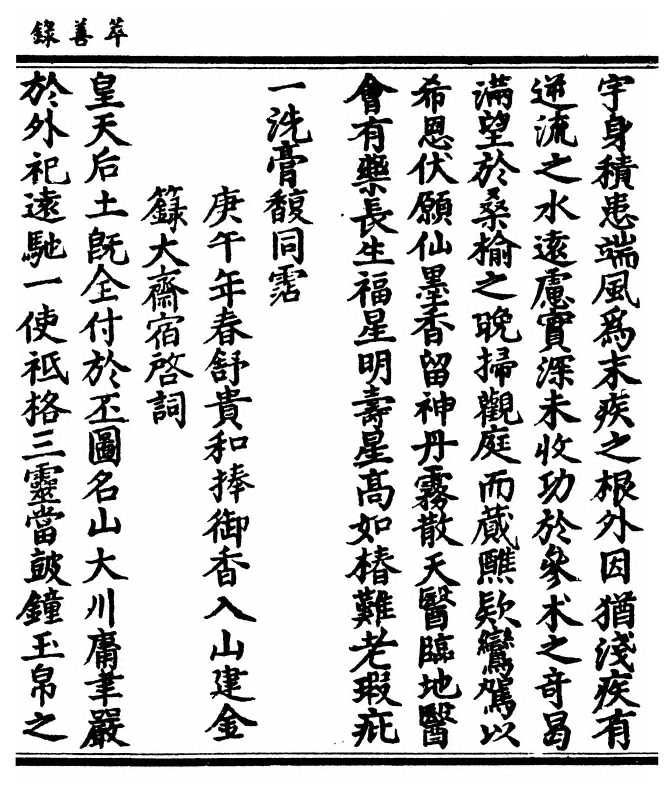 萃善錄
宇身積患端風為末疾之根外因猶淺疾有
逆流之水遠慮實深未收功於參术之奇曷
滿望於桑榆之晚掃觀庭而蕆醮欵鸞駕以
希恩伏願仙墨香留神丹霧散天醫臨地醫
會有藥長生福星明壽星髙如椿難老瑕疵
一洗膏馥同霑
庚午年春舒貴和捧御香入山建金
籙大齋宿啓詞
皇天后土旣全付於丕圖名山大川庸聿嚴
於外祀遠馳一使祗格三靈當鼓鐘玉帛之